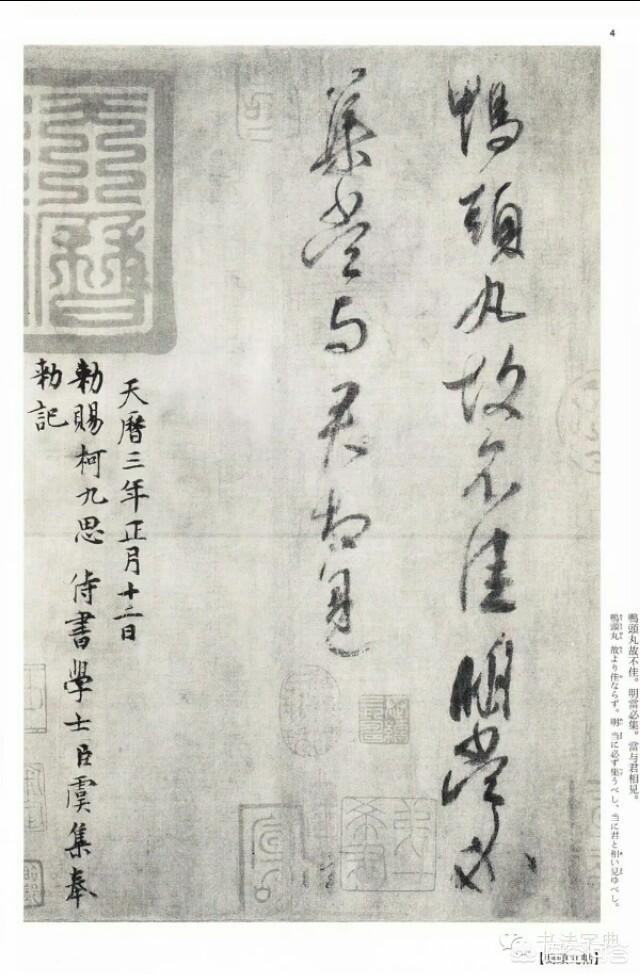 4
鴨頭丸故不佳。明當必集。當与君相見。
鴨頭丸 故より佳ならず。明 当に必ず集うべし、当に君と相い見ゆべし。
鴨頭丸故不佳明當必
集當与君相見
天曆三年正月十二日
勑賜柯九思 侍書學士臣虞集奉
勑記
天曆
书法字典
【鴨頭丸帖】